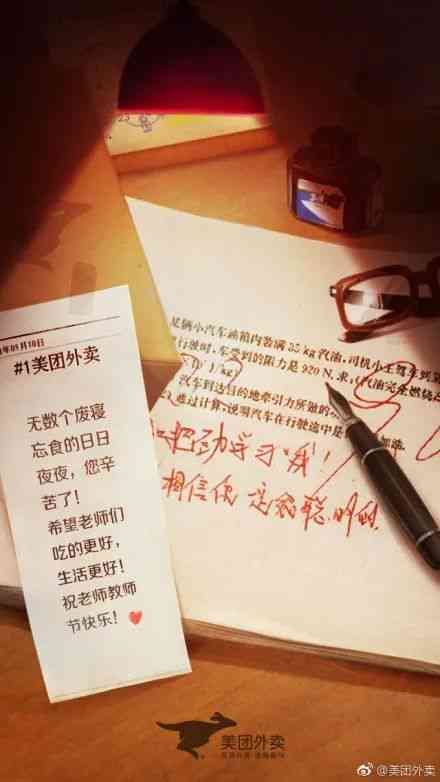 09月10日
#1美团外卖
无数个废寝
忘食的日日
夜夜，您辛
苦了！
希望老师们
吃的更好，
生活更好！
祝老师教师
节快乐！
某辆小汽车油箱内装满35 kg汽油，司机小王驾车到
行驶时，车受到的阻力是920 N。求：汽油完全燃烧
J/kg）
汽车到达目的地牵引力所做的
通过计算，说明汽车在行驶途中是
加油。
把劲学习哦！
相信你 是最聪明的
美团外卖
@美团外卖